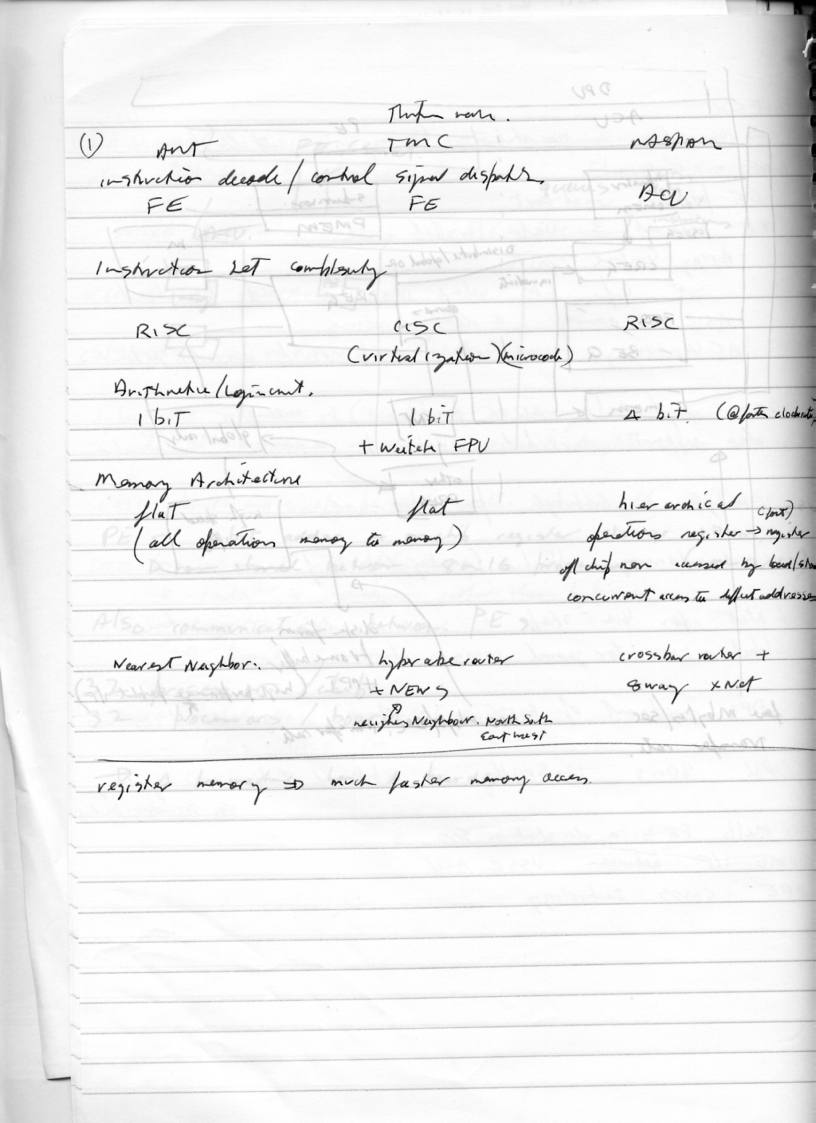 (1) AMT TMC MASPAR
instruction decode / control signal dispatch.
FE FE ACU
Instruction set complexity
RISC CISC RISC
(virtualization) (microcode)
Arithmetic/Logic unit.
1 bit 1 bit 4 bit (@ clockrate)
+ Weitek FPU
Memory Architecture
flat flat hierarchical
(all operations memory to memory) operations register → register (fast)
off chip mem accessed by load/store
concurrent access to different addresses
Nearest Neighbor. hypercube router crossbar router +
+ NEWS 8 way XNet
Neighbour. North South
East West
register memory ⇒ much faster memory access.